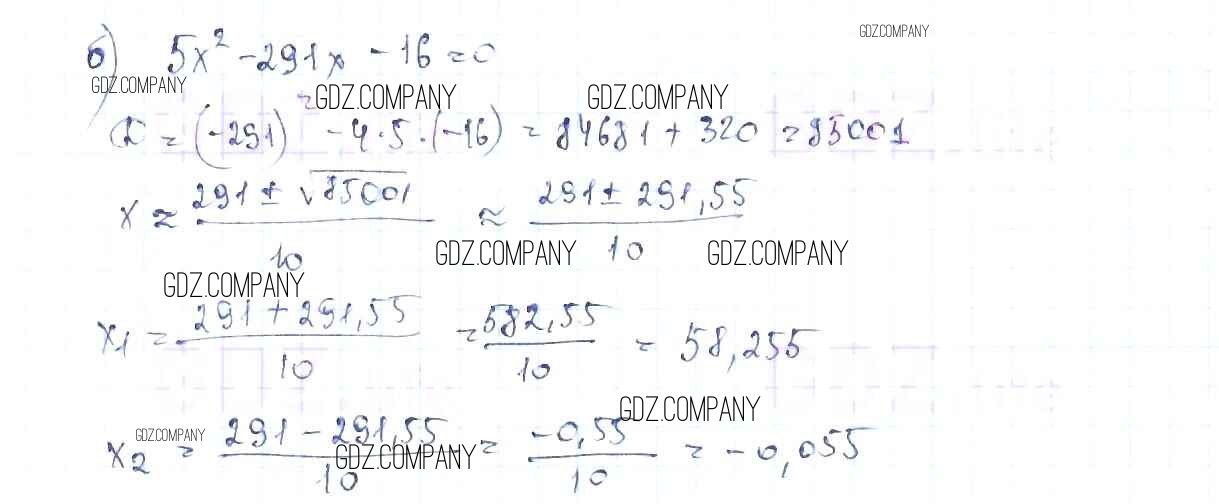 GDZ.COMPANY
б) 5x² - 291x - 16 = 0
GDZ.COMPANY
GDZ.COMPANY GDZ.COMPANY
D = (-291)² - 4·5·(-16) = 84681 + 320 = 85001
x = (291 ± √85001)/10 ≈ (291 ± 291,55)/10
GDZ.COMPANY GDZ.COMPANY
GDZ.COMPANY
x₁ = (291 + 291,55)/10 = 582,55/10 = 58,255
GDZ.COMPANY
GDZ.COMPANY
x₂ = (291 - 291,55)/10 = -0,55/10 = -0,055
GDZ.COMPANY